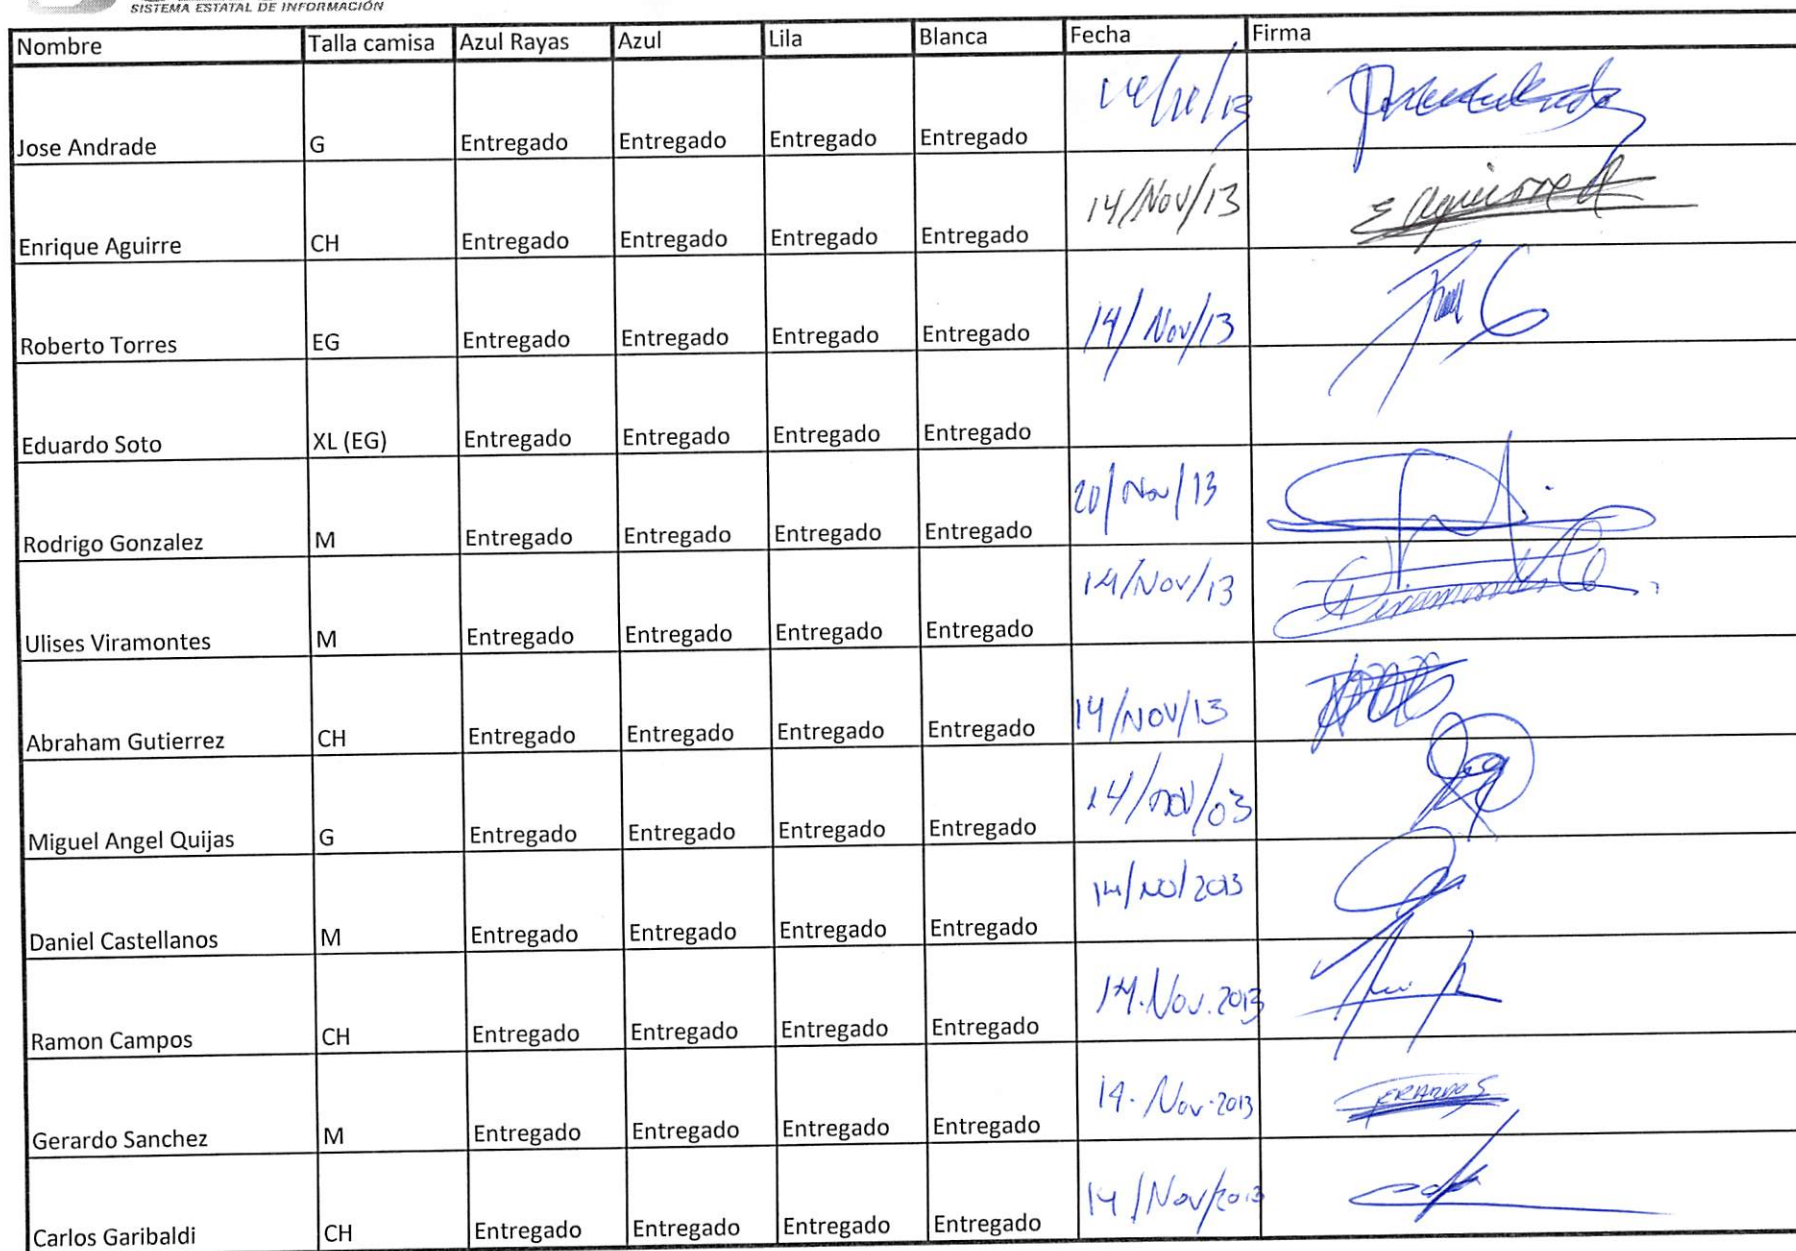 SISTEMA ESTATAL DE INFORMACIÓN
Nombre Talla camisa Azul Rayas Azul Lila Blanca Fecha Firma
Jose Andrade G Entregado Entregado Entregado Entregado
Enrique Aguirre CH Entregado Entregado Entregado Entregado 14/Nov/13
Roberto Torres EG Entregado Entregado Entregado Entregado 14/Nov/13
Eduardo Soto XL (EG) Entregado Entregado Entregado Entregado
Rodrigo Gonzalez M Entregado Entregado Entregado Entregado 20/Nov/13
Ulises Viramontes M Entregado Entregado Entregado Entregado 14/Nov/13
Abraham Gutierrez CH Entregado Entregado Entregado Entregado 14/NOV/13
Miguel Angel Quijas G Entregado Entregado Entregado Entregado 14/nov/03
Daniel Castellanos M Entregado Entregado Entregado Entregado 14/NO/2013
Ramon Campos CH Entregado Entregado Entregado Entregado 14.Nov.2013
Gerardo Sanchez M Entregado Entregado Entregado Entregado 14.Nov.2013
Carlos Garibaldi CH Entregado Entregado Entregado Entregado 14/Nov/2013